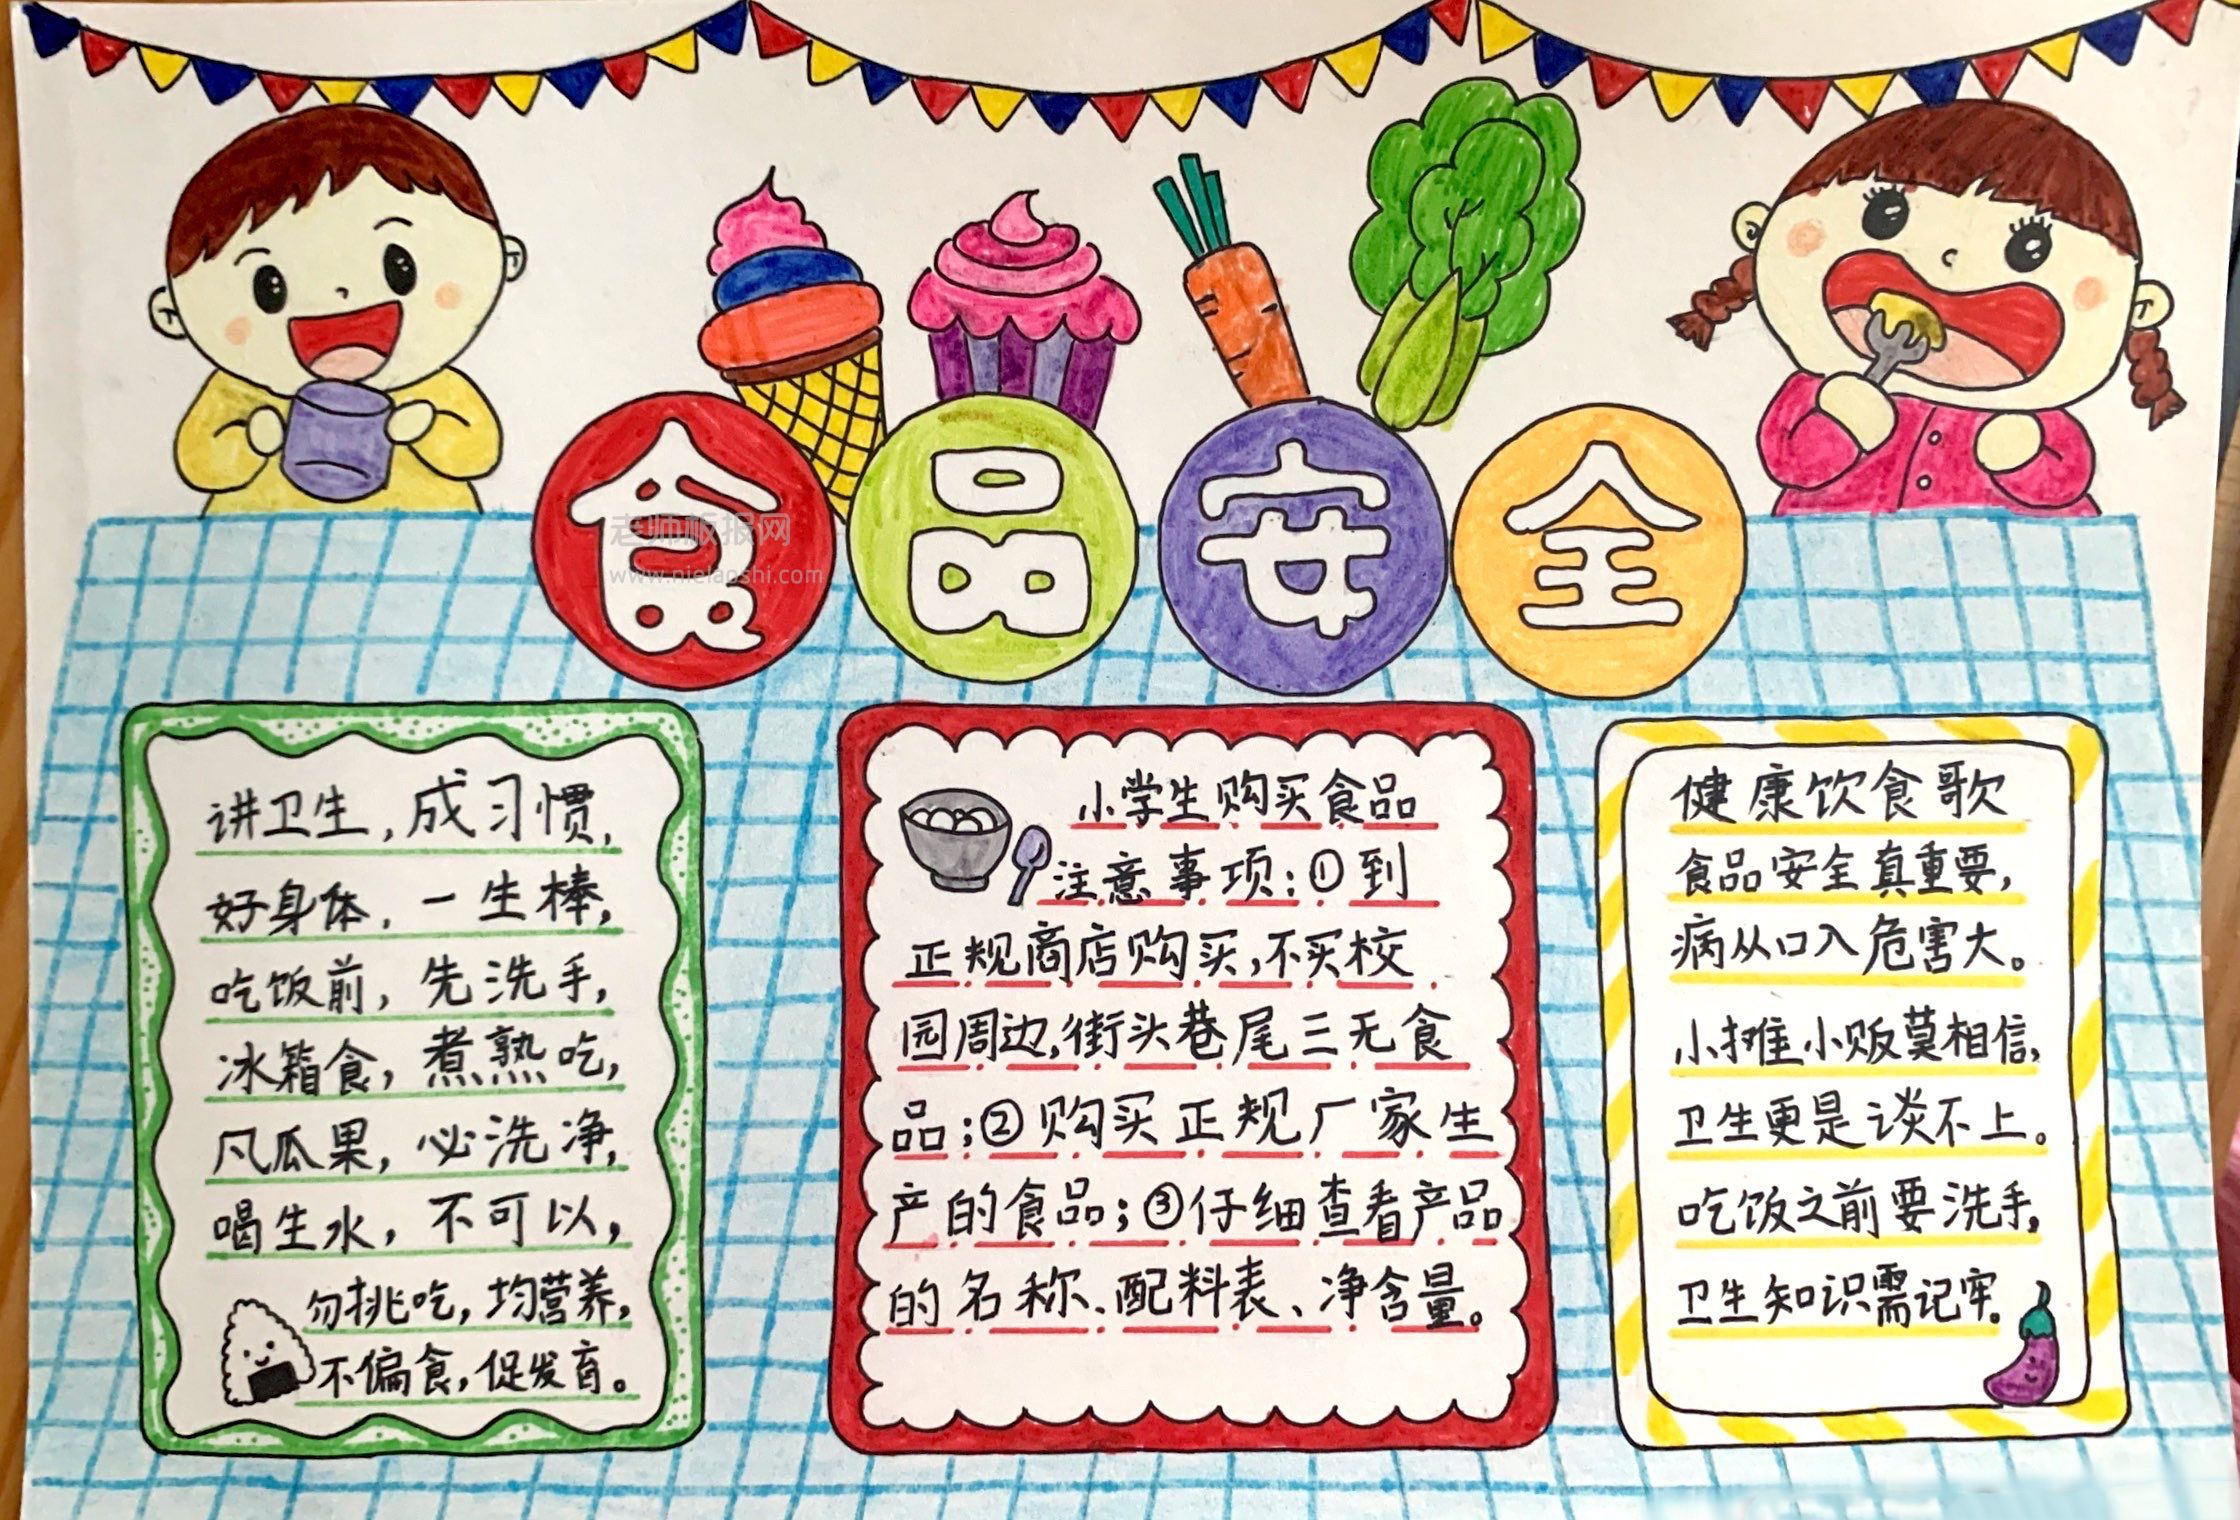 食品安全
老师板报网
讲卫生,成习惯,
好身体,一生棒,
吃饭前,先洗手,
冰箱食,煮熟吃,
凡瓜果,必洗净,
喝生水,不可以,
勿挑吃,均营养,
不偏食,促发育。
小学生购买食品
注意事项:①到
正规商店购买,不买校
园周边,街头巷尾三无食
品;②购买正规厂家生
产的食品;③仔细查看产品
的名称、配料表、净含量。
健康饮食歌
食品安全真重要,
病从口入危害大。
小摊小贩莫相信,
卫生更是谈不上。
吃饭之前要洗手,
卫生知识需记牢。